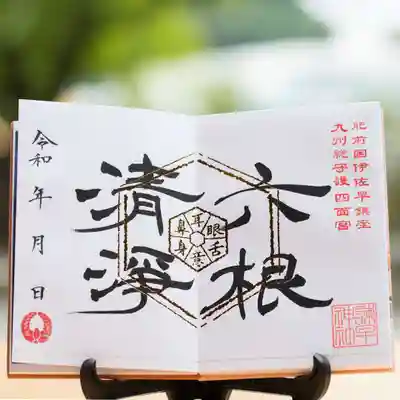 肥前国伊佐早鎮座
九州総守護四面宮
六根
清浄
眼
耳
鼻
舌
身
意
令和 年 月 日
諫早神社